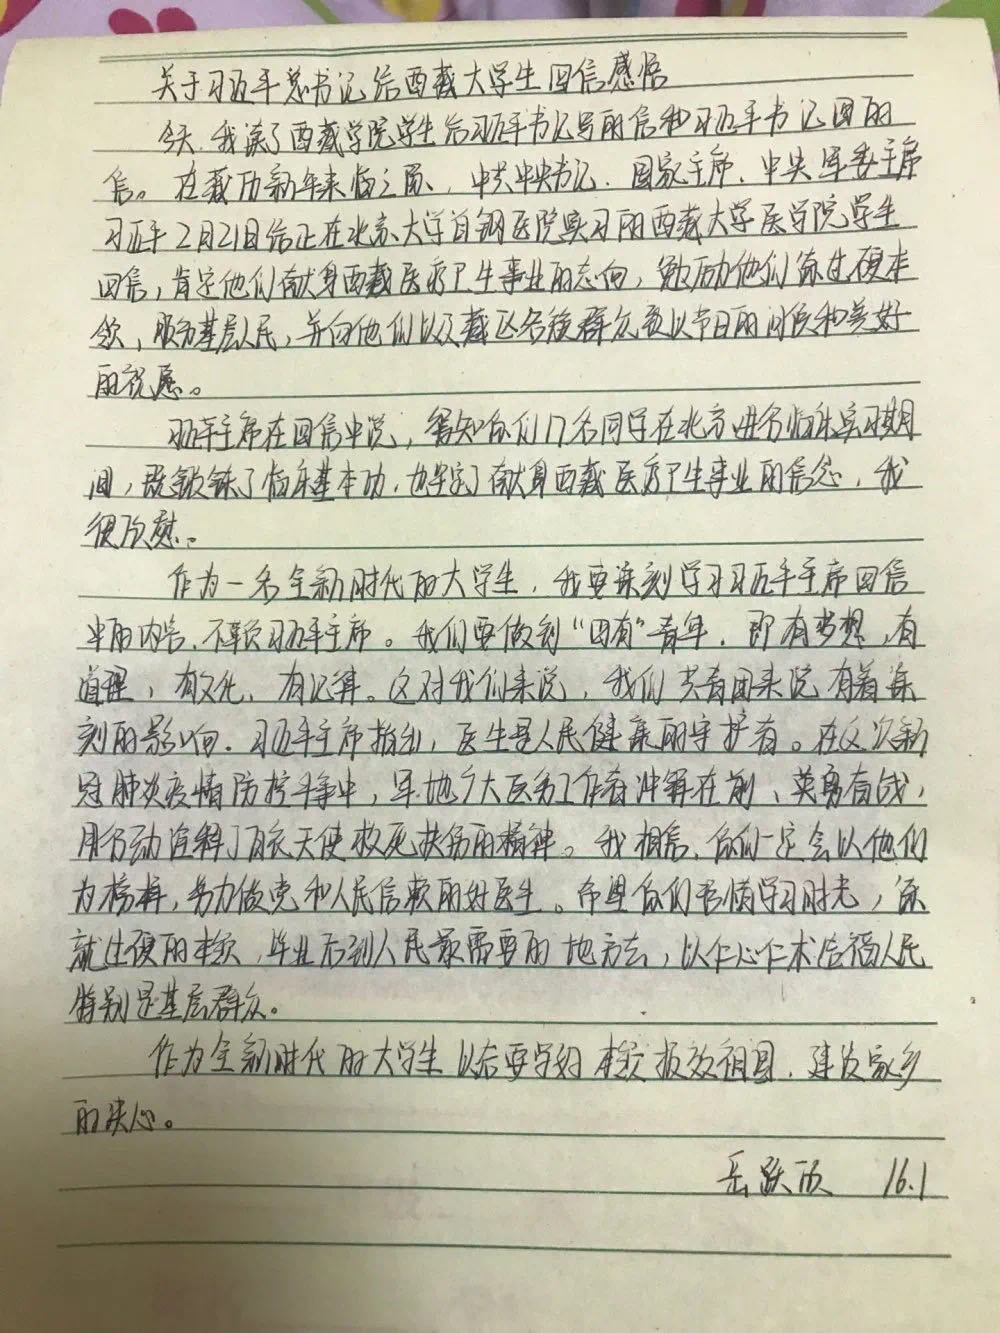 关于习近平总书记给西藏大学生回信感悟
今天,我读了西藏学院学生给习近平书记写的信和习近平书记回的
信。在藏历新年来临之际、中共中央书记、国家主席、中央军委主席
习近平2月21日给正在北京大学首钢医院实习的西藏大学医学院学生
回信,肯定他们献身西藏医疗卫生事业的志向,勉励他们练过硬本
领,服务基层人民,并向他们以及藏区各族群众致以节日的问候和美好
的祝愿。
习近平主席在回信中说,得知你们17名同学在北京进行临床实习期
间,既锻炼了临床基本功,也坚定了献身西藏医疗卫生事业的信念,我
很欣慰。
作为一名全新时代的大学生,我要深刻学习习近平主席回信
中的内容,不辜负习近平主席。我们要做到“四有”青年,即有梦想,有
道理,有文化,有纪律。这对我们来说,我们共青团来说有着深
刻的影响。习近平主席指出,医生是人民健康的守护者。在这次新
冠肺炎疫情防控斗争中,军地广大医务工作者冲锋在前、英勇奋战,
用行动诠释了白衣天使救死扶伤的精神。我相信,你们一定会以他们
为榜样,努力做党和人民信赖的好医生。希望你们珍惜学习时光,练
就过硬的本领,毕业后到人民最需要的地方去,以仁心仁术造福人民
特别是基层群众。
作为全新时代的大学生以后要学好本领报效祖国,建设家乡
的决心。
岳跃 16.1